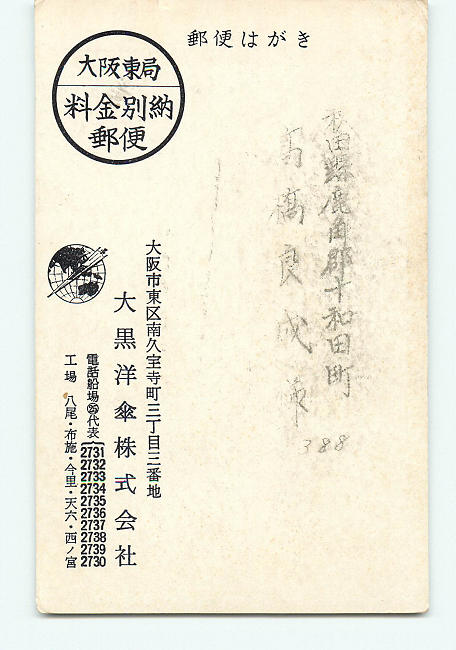 郵便はがき
大阪東局
料金別納
郵便
秋田縣鹿角郡十和田町
高橋良成
388
大阪市東区南久宝寺町三丁目三番地
大黒洋傘株式会社
電話船場㉕代表
2731
2732
2733
2734
2735
2736
2737
2738
2739
2730
工場 八尾・布施・今里・天六・西ノ宮